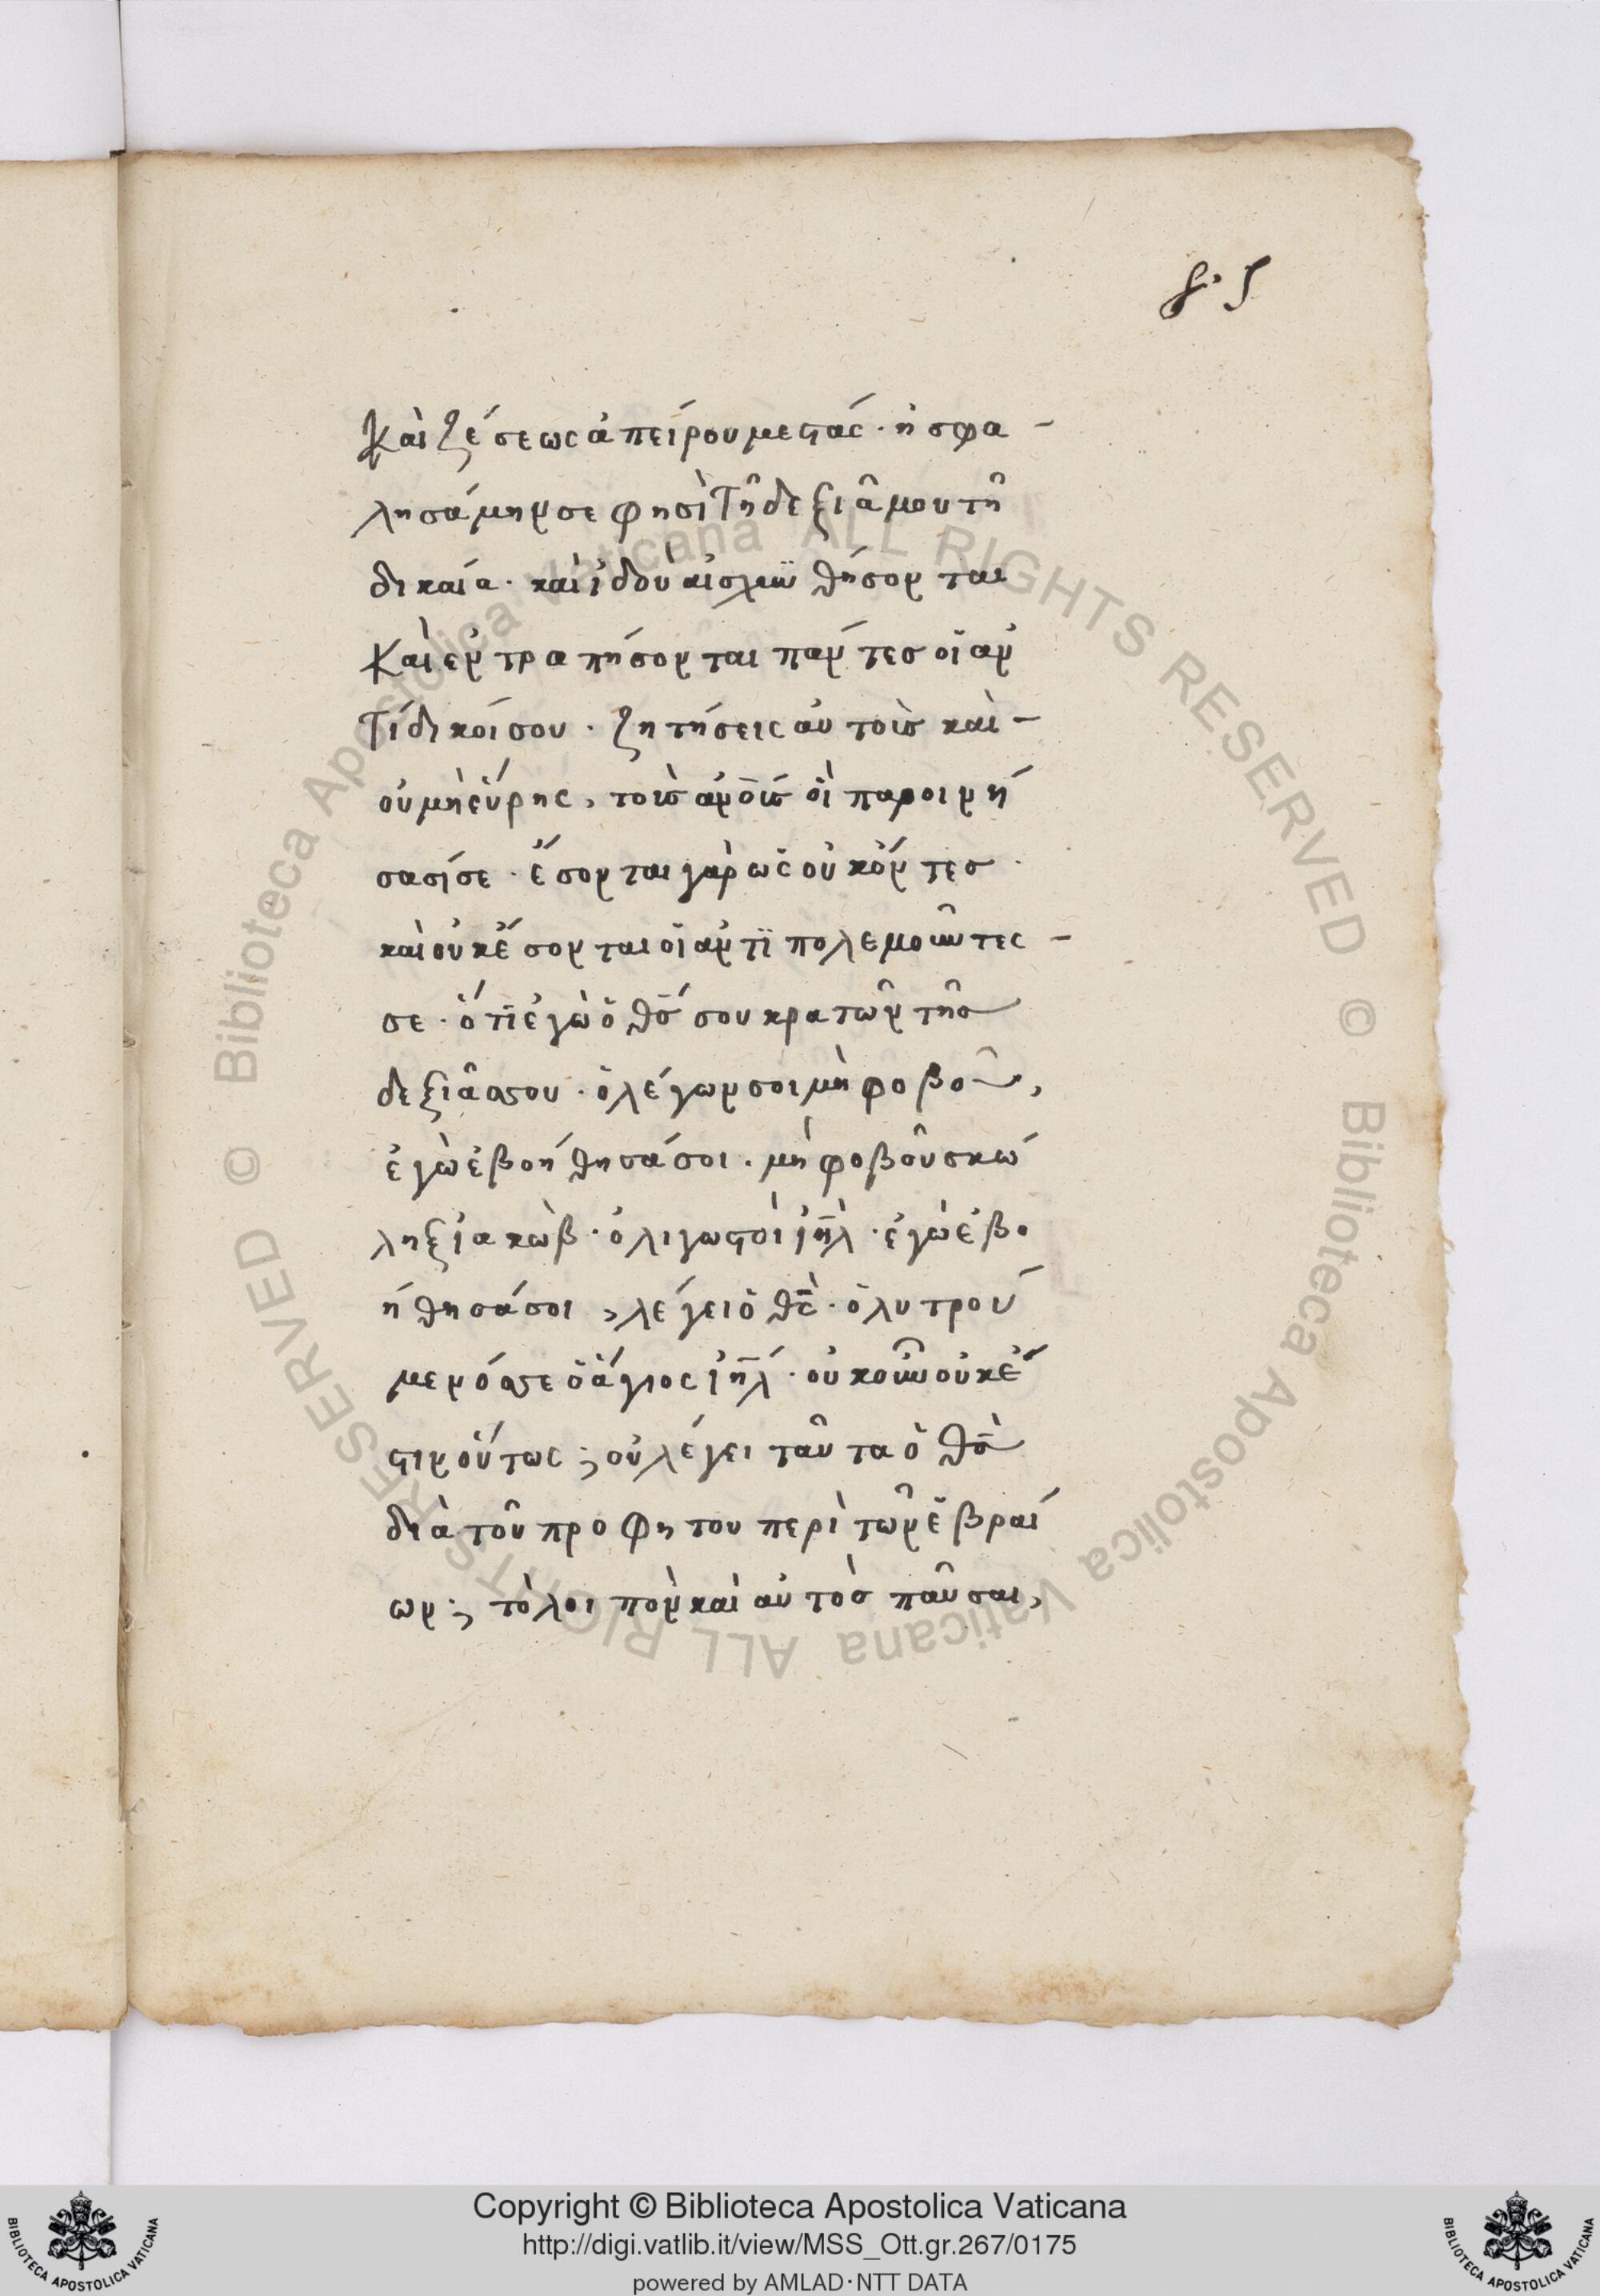 8·5
Καὶ ζέσεως ἀπείρου μεστάς · ἠσφα-
λησάμην σε φησὶ τῆ δεξιᾶ μου τῆ
δικαία · καὶ ἰδοὺ αἰσχυνθήσονται
Καὶ ἐντραπήσονται πάντες οἱ ἀν
τίδικοί σου · ζητήσεις αὐτοὺς καὶ -
οὐ μὴ εὕρης, τοὺς ἀνο̅υς οἳ παροινή
σασί σε · ἔσονται γὰρ ὡς οὐκ ὄντες ·
καὶ οὐκ ἔσονται οἱ ἀντιπολεμοῦντες -
σε · ὅτι ἐγὼ ὁ θ̅ς σου κρατῶν τῆς
δεξιᾶς σου · ὁ λέγων σοι μὴ φοβοῦ,
ἐγὼ ἐβοήθησά σοι · μὴ φοβοῦ σκώ
ληξ ἰακὼβ · ὀλιγωστὸὶ ἰη̅λ · ἐγὼ ἐβο
ήθησά σοι, λέγει ὁ θ̅ς · ὁ λυτρού
μενός σε ὁ ἅγιος ἰη̅λ · οὐκοῦν οὐκ ἔ
στιν οὕτως ; οὐ λέγει ταῦτα ὁ θ̅ς
διὰ τοῦ προφητου περὶ τῶν ἑβραί
ων ; τὸ λοιπὸν καὶ αὐτὸς παῦσαι,
Copyright © Biblioteca Apostolica Vaticana
http://digi.vatlib.it/view/MSS_Ott.gr.267/0175
powered by AMLAD·NTT DATA
BIBLIOTECA APOSTOLICA VATICANA
BIBLIOTECA APOSTOLICA VATICANA
© Biblioteca Apostolica Vaticana ALL RIGHTS RESERVED
© Biblioteca Apostolica Vaticana ALL RIGHTS RESERVED